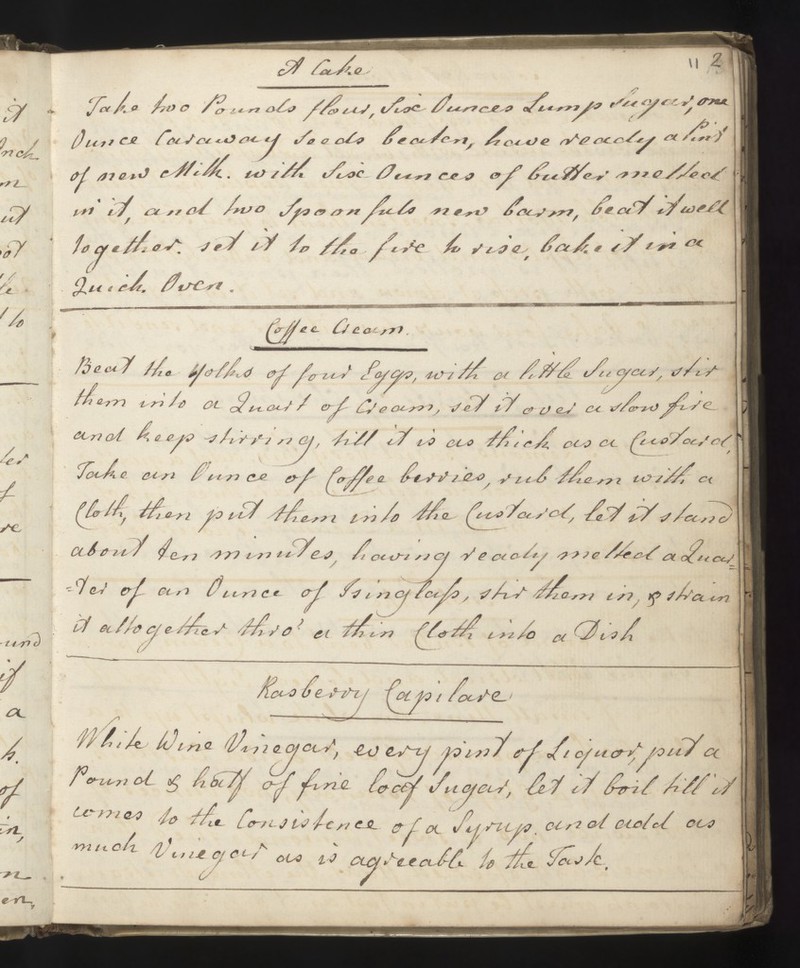 A Cake
11 2
Take two Pounds flour, Six Ounces Lump Sugar, one
Ounce Caraway Seeds beaten, have ready a Pint
of new Milk. with Six Ounces of butter melted
in it, and two Spoonfuls new barm, beat it well
together. set it to the fire to rise, bake it in a
Quick Oven.
Coffee Cream.
Beat the yolks of four Eggs, with a little Sugar, stir
them into a Quart of Cream, set it over a slow fire
and keep stirring, till it is as thick as a Custard,
Take an Ounce of Coffee berries, rub them with a
Cloth, then put them into the Custard, let it stand
about ten minutes, having ready melted a Quar=
=ter of an Ounce of Isinglass, stir them in, & strain
it altogether thro' a thin Cloth into a Dish
Rasberry Capilare
White Wine Vinegar, every pint of Liquor, put a
Pound & half of fine loaf Sugar, let it boil till it
comes to the Consistence of a Syrup. and add as
much Vinegar as is agreeable to the Taste.
it
ut
to
re
und
if
a
h.
of
in,